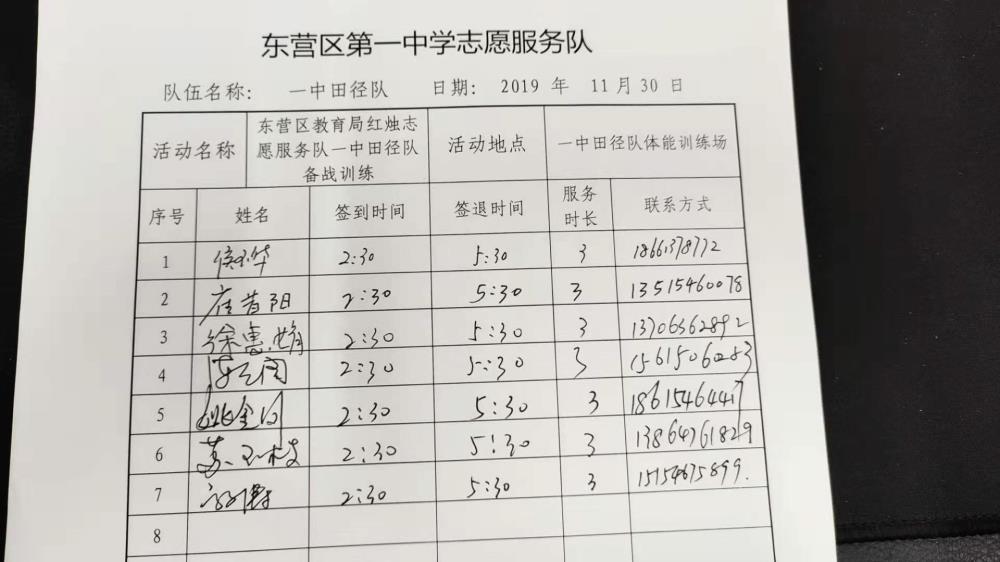 东营区第一中学志愿服务队
队伍名称： 一中田径队 日期： 2019 年 11月30 日
活动名称 东营区教育局红烛志愿服务队一中田径队备战训练 活动地点 一中田径队体能训练场
序号 姓名 签到时间 签退时间 服务时长 联系方式
1 2:30 5:30 3 18661378772
2 崔昔阳 2:30 5:30 3 13515460078
3 徐惠娟 2:30 5:30 3 13706362892
4 2:30 5:30 3 15615060283
5 2:30 5:30 3
6 苏玉枝 2:30 5:30 3 13864761829
7 2:30 5:30 3 15154675899.
8